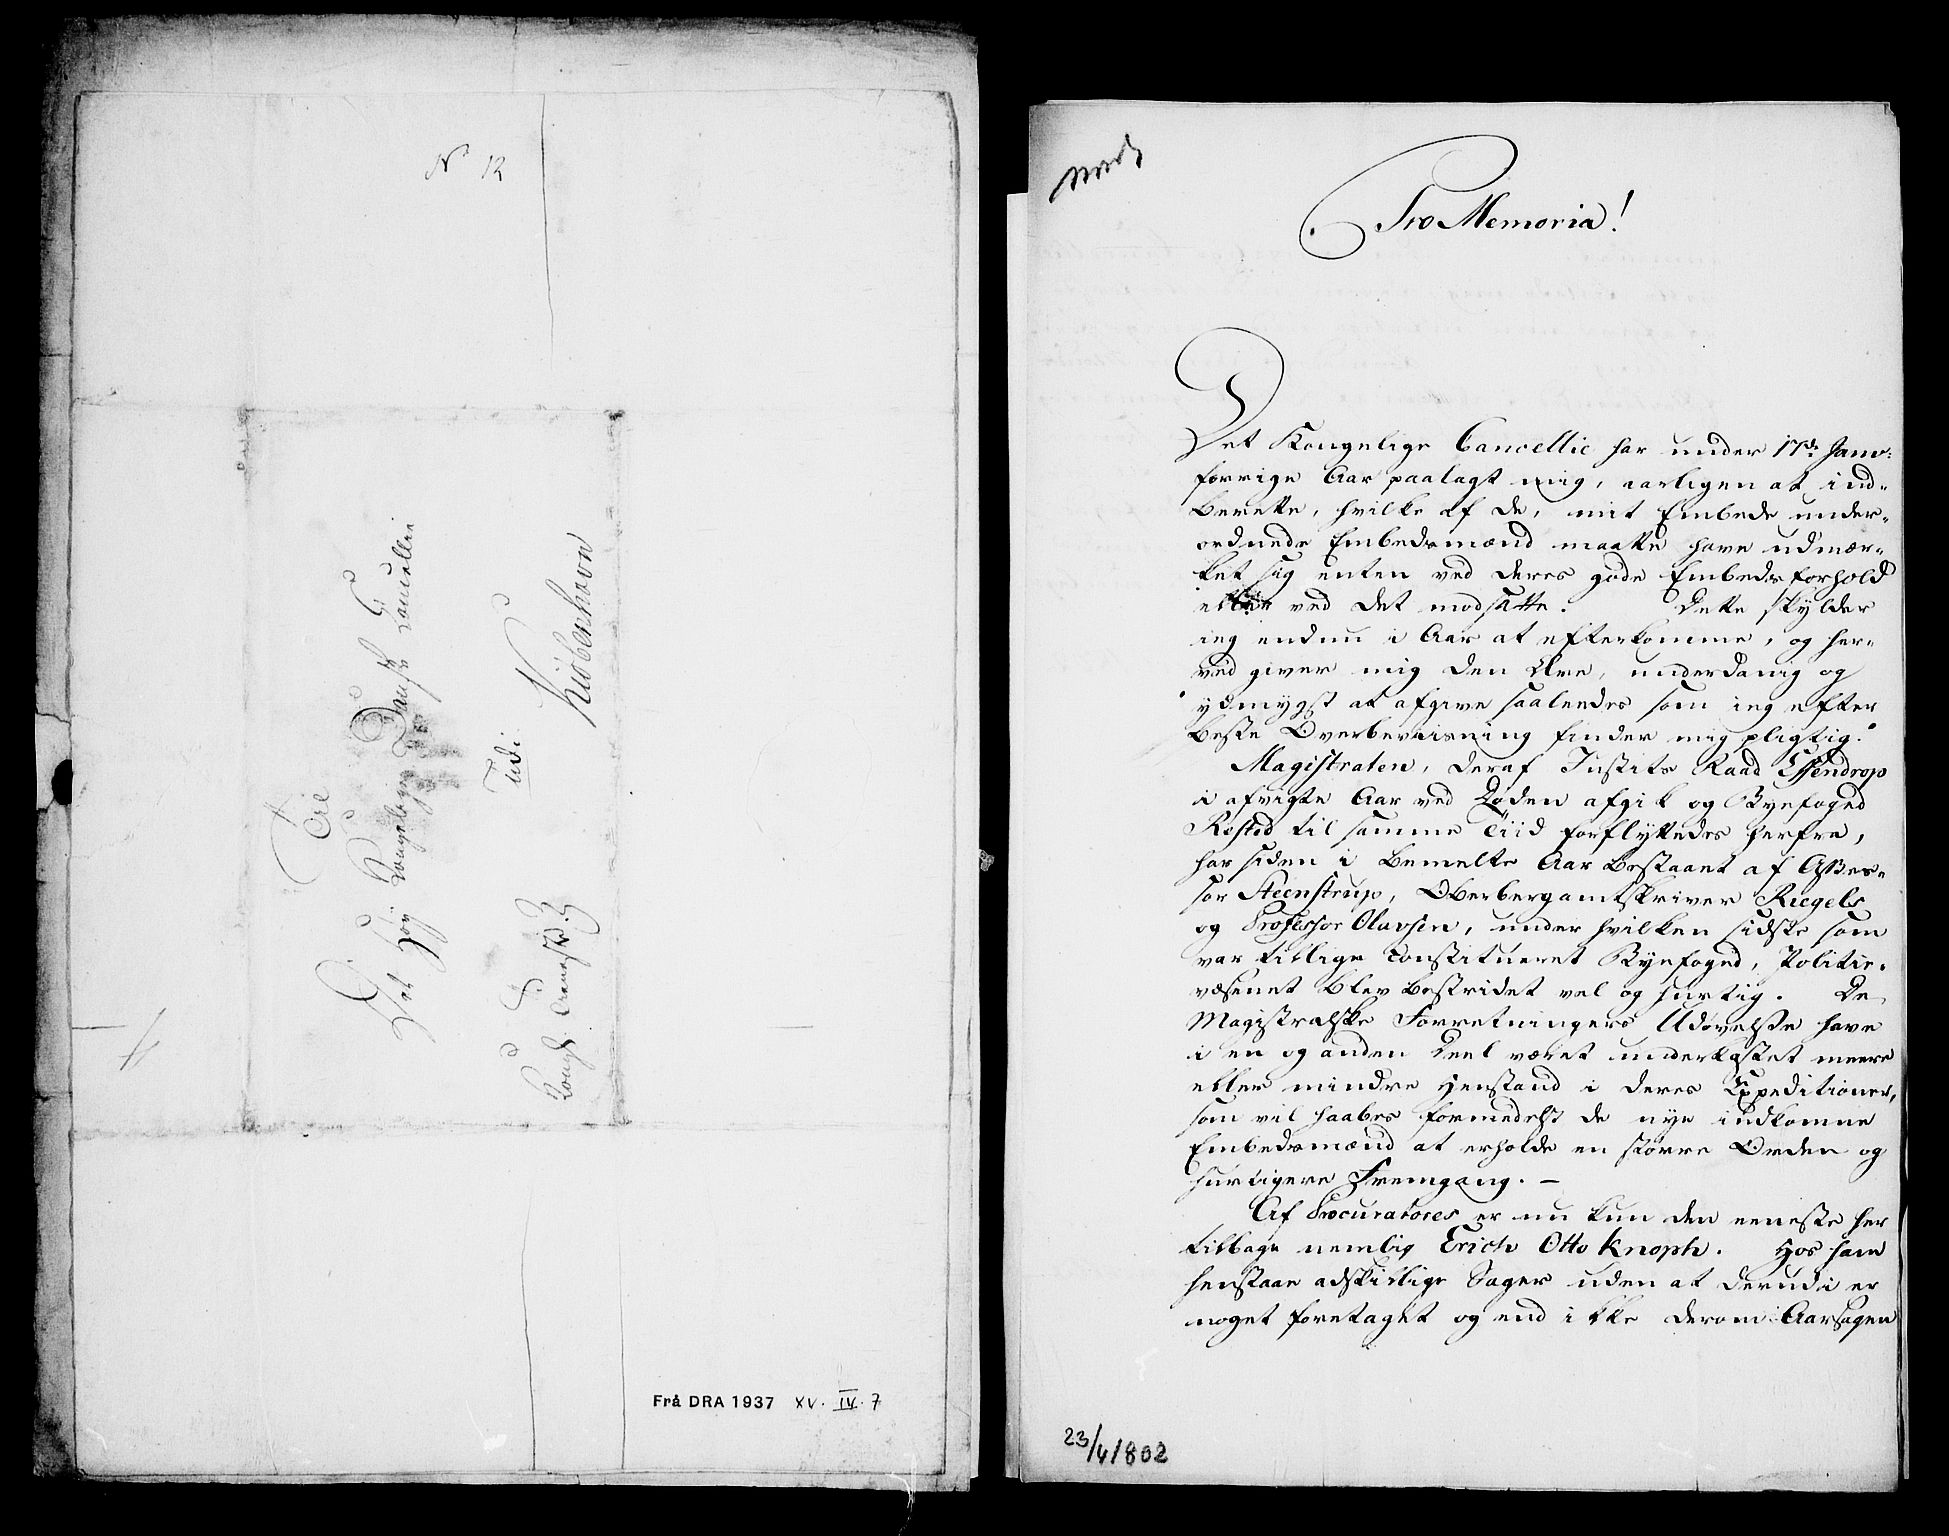 No 12
Til
Det Høy Kongelige Danske Cancellie
udi
Kiöbenhavn
Kongl: Tieneste
Frå DRA 1937 XV. IV. 7
Pro Memoria!
Det Kongelige Cancellie har under 17de Janv:
forrige Aar paalagt mig, aarligen at ind-
berette, hvilke af de, mit Embede under-
ordnede Embedsmænd maatte have udmær-
ket sig enten ved deres gode Embedsforhold
eller ved det modsatte. Dette skylder
ieg endnu i Aar at efterkomme, og her-
ved giver mig den Ære, underdanig og
ydmygst at afgive saaledes som ieg efter
beste Overbeviisning finder mig pligtig.
Magistraten, deraf Justits Raad Essendrop
i afvigte Aar ved Døden afgik og Byefoged
Rosted til samme Tiid forflyttedes herfra,
har siden i bemelte Aar bestaaet af Asses-
sor Steenstrup, Oberbergamtskriver Riegels
og Professor Olavsen, under hvilken sidste som
var tillige Constitueret Byefoged, Politie-
væsenet blev bestridet vel og hurtig. De
Magistralske Forretningers Udøvelse have
i en og anden Deel været underkastet meere
eller mindre Henstand i deres Expeditioner,
som vil haabes formedelst de nye indkomne
Embedsmænd at erholde en større Orden og
hurtigere Fremgang. —
Af Procuratores er nu kun den eeneste her
tilbage nemlig Erich Otto Knoph. Hos ham
henstaae adskillige Sager uden at derudi er
noget foretaget og end ikke derom Aarsagen
23/4 1802